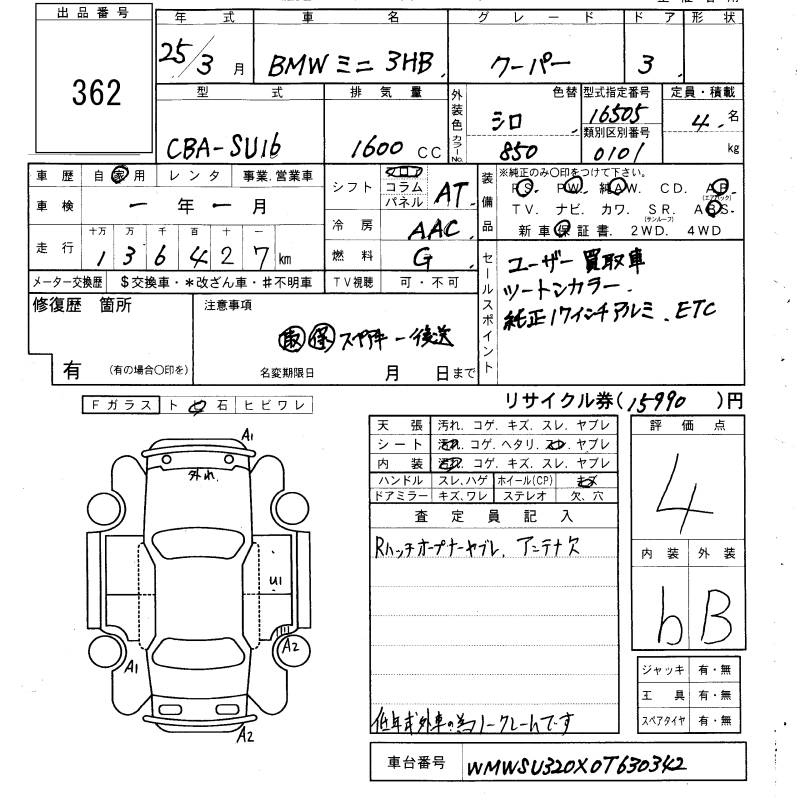 出品番号
362
年式 車名 グレード ドア 形状
25/3月 BMWミニ 3HB クーパー 3
型式 排気量 外装色 色替 型式指定番号 定員・積載
CBA-SU16 1600CC シロ 16505 4名
カラーNo. 850 類別区別番号 0101 kg
車歴 自家用 レンタ 事業.営業車
車検 一年一月
走行 十万 万 千 百 十 一
1 3 6 4 2 7 km
メーター交換歴 $交換車・*改ざん車・#不明車
シフト フロア コラム パネル AT
冷房 AAC
燃料 G
TV視聴 可・不可
装備品 ※純正のみ〇印をつけて下さい。
PS. PW. 純AW. CD. AB.(エアバッグ)
TV. ナビ. カワ. SR.(サンルーフ) ABS.
新車保証書. 2WD. 4WD
セールスポイント
ユーザー買取車
ツートンカラー.
純正17インチアルミ. ETC
修復歴 箇所
有 (有の場合〇印を)
注意事項
取 保 スペアキー 一後送
名変期限日 月 日まで
リサイクル券(15990)円
Fガラス ト ビ 石 ヒビワレ
A1
外れ
U1
A2
A1
A2
天張 汚れ. コゲ. キズ. スレ. ヤブレ
シート 汚れ. コゲ. ヘタリ. スレ. ヤブレ
内装 汚れ. コゲ. キズ. スレ. ヤブレ
ハンドル スレ.ハゲ ホイール(CP) キズ
ドアミラー キズ.ワレ ステレオ 欠.穴
査定員記入
Rハッチオープナーヤブレ. アンテナ欠
低年式外車の為ノークレームです
評価点
4
内装 外装
b B
ジャッキ 有・無
工具 有・無
スペアタイヤ 有・無
車台番号 WMWSU320X0T630342